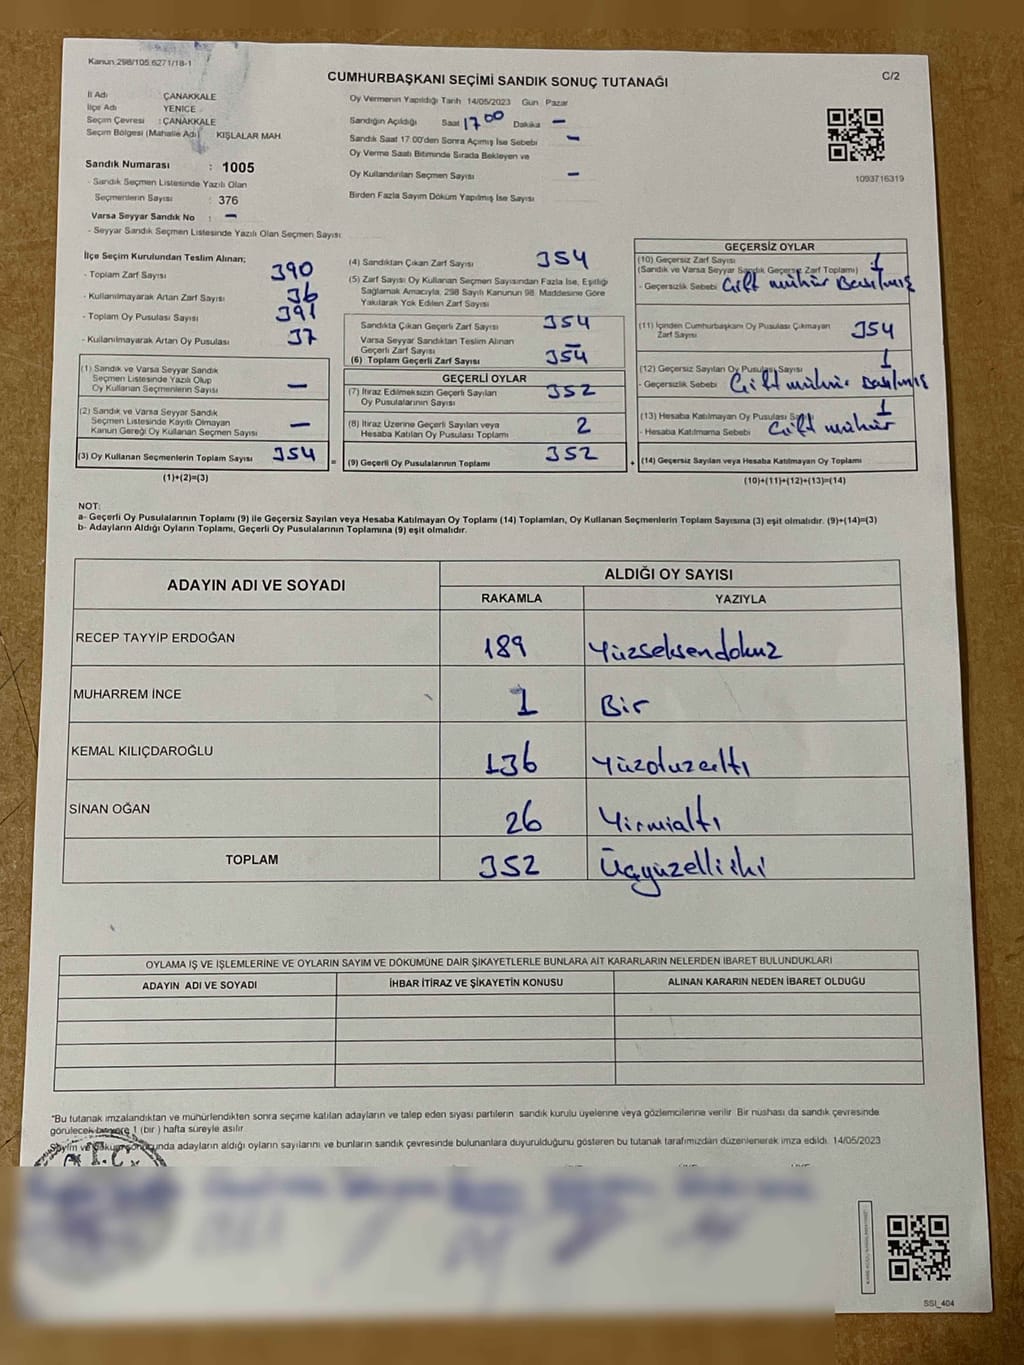 Kanun 298/105 6271/18-1
CUMHURBAŞKANI SEÇİMİ SANDIK SONUÇ TUTANAĞI
C/2
İl Adı ÇANAKKALE
İlçe Adı YENİCE
Seçim Çevresi : ÇANAKKALE
Seçim Bölgesi (Mahalle Adı) KIŞLALAR MAH
Sandık Numarası : 1005
- Sandık Seçmen Listesinde Yazılı Olan
Seçmenlerin Sayısı : 376
Varsa Seyyar Sandık No : -
- Seyyar Sandık Seçmen Listesinde Yazılı Olan Seçmen Sayısı
Oy Vermenin Yapıldığı Tarih 14/05/2023 Gün Pazar
Sandığın Açıldığı Saat 17 00 Dakika -
Sandık Saat 17:00'den Sonra Açımış İse Sebebi -
Oy Verme Saati Bitiminde Sırada Bekleyen ve
Oy Kullandırılan Seçmen Sayısı -
Birden Fazla Sayım Döküm Yapılmış İse Sayısı
1093716319
İlçe Seçim Kurulundan Teslim Alınan;
- Toplam Zarf Sayısı 390
- Kullanılmayarak Artan Zarf Sayısı 36
- Toplam Oy Pusulası Sayısı 391
- Kullanılmayarak Artan Oy Pusulası 37
(1) Sandık ve Varsa Seyyar Sandık
Seçmen Listesinde Yazılı Olup
Oy Kullanan Seçmenlerin Sayısı -
(2) Sandık ve Varsa Seyyar Sandık
Seçmen Listesinde Kayıtlı Olmayan
Kanun Gereği Oy Kullanan Seçmen Sayısı -
(3) Oy Kullanan Seçmenlerin Toplam Sayısı 354 =
(1)+(2)=(3)
(4) Sandıktan Çıkan Zarf Sayısı 354
(5) Zarf Sayısı Oy Kullanan Seçmen Sayısından Fazla İse, Eşitliği
Sağlamak Amacıyla, 298 Sayılı Kanunun 98. Maddesine Göre
Yakılarak Yok Edilen Zarf Sayısı -
Sandıkta Çıkan Geçerli Zarf Sayısı 354
Varsa Seyyar Sandıktan Teslim Alınan
Geçerli Zarf Sayısı -
(6) Toplam Geçerli Zarf Sayısı 354
GEÇERLİ OYLAR
(7) İtiraz Edilmeksizin Geçerli Sayılan
Oy Pusulalarının Sayısı 352
(8) İtiraz Üzerine Geçerli Sayılan veya
Hesaba Katılan Oy Pusulası Toplamı 2
(9) Geçerli Oy Pusulalarının Toplamı 352 +
GEÇERSİZ OYLAR
(10) Geçersiz Zarf Sayısı
(Sandık ve Varsa Seyyar Sandık Geçersiz Zarf Toplamı) 1
- Geçersizlik Sebebi Çift mühür Basılmış
(11) İçinden Cumhurbaşkanı Oy Pusulası Çıkmayan
Zarf Sayısı 354
(12) Geçersiz Sayılan Oy Pusulası Sayısı 1
- Geçersizlik Sebebi Çift mühür Basılmış
(13) Hesaba Katılmayan Oy Pusulası Sayısı 1
- Hesaba Katılmama Sebebi Çift mühür
(14) Geçersiz Sayılan veya Hesaba Katılmayan Oy Toplamı
(10)+(11)+(12)+(13)=(14)
NOT:
a- Geçerli Oy Pusulalarının Toplamı (9) ile Geçersiz Sayılan veya Hesaba Katılmayan Oy Toplamı (14) Toplamları, Oy Kullanan Seçmenlerin Toplam Sayısına (3) eşit olmalıdır. (9)+(14)=(3)
b- Adayların Aldığı Oyların Toplamı, Geçerli Oy Pusulalarının Toplamına (9) eşit olmalıdır.
ADAYIN ADI VE SOYADI
ALDIĞI OY SAYISI
RAKAMLA YAZIYLA
RECEP TAYYİP ERDOĞAN 189 Yüzseksendokuz
MUHARREM İNCE 1 Bir
KEMAL KILIÇDAROĞLU 136 Yüzotuzaltı
SİNAN OĞAN 26 Yirmialtı
TOPLAM 352 Üçyüzelliiki
OYLAMA İŞ VE İŞLEMLERİNE VE OYLARIN SAYIM VE DÖKÜMÜNE DAİR ŞİKAYETLERLE BUNLARA AİT KARARLARIN NELERDEN İBARET BULUNDUKLARI
ADAYIN ADI VE SOYADI İHBAR İTİRAZ VE ŞİKAYETİN KONUSU ALINAN KARARIN NEDEN İBARET OLDUĞU
*Bu tutanak imzalandıktan ve mühürlendikten sonra seçime katılan adayların ve talep eden siyasi partilerin sandık kurulu üyelerine veya gözlemcilerine verilir Bir nüshası da sandık çevresinde
görülecek bir yere 1 (bir) hafta süreyle asılır
Sayım ve döküm sonucunda adayların aldığı oyların sayılarını ve bunların sandık çevresinde bulunanlara duyurulduğunu gösteren bu tutanak tarafımızdan düzenlenerek imza edildi. 14/05/2023
SSI_404